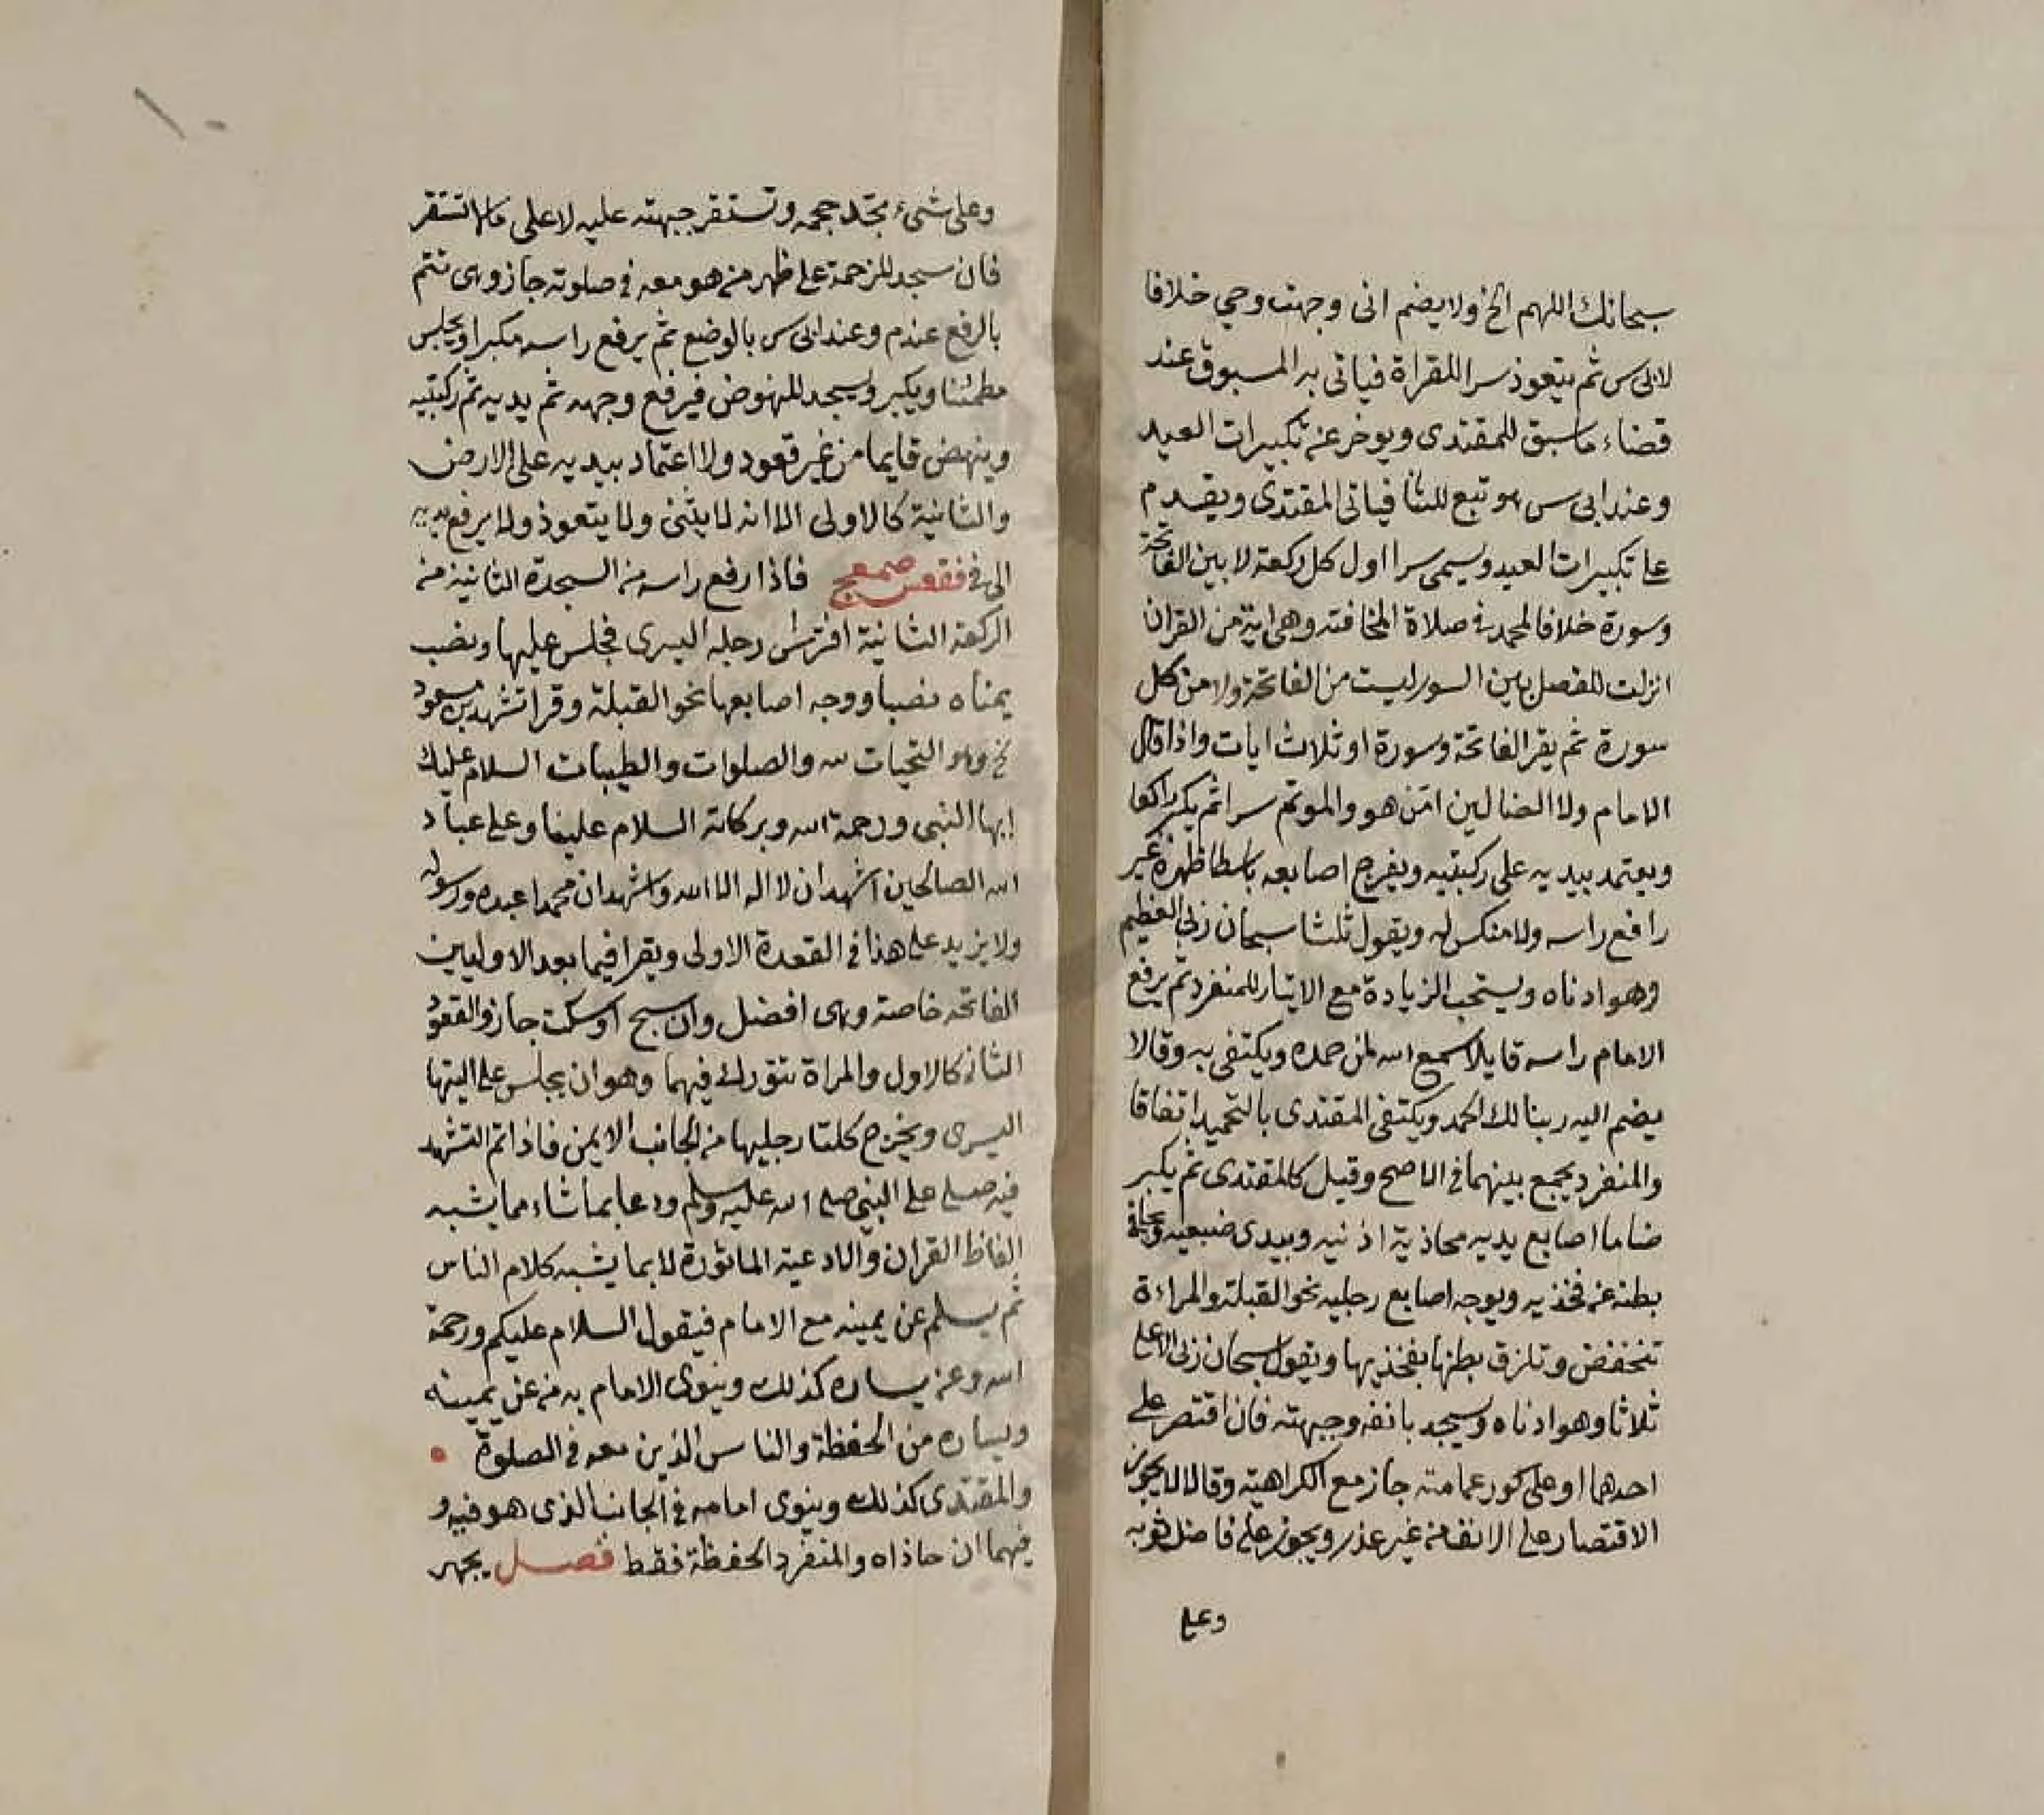 سبحانك اللهم الخ ولا يضم انى وجهت وجهي خلافا
لابى س ثم يتعوذ سرا للقراة فياتى به المسبوق عند
قضاء ما سبق لا المقتدى ويوخر عن تكبيرات العيد
وعند ابى س هو تبع للثنا فياتى المقتدى ويقدم
على تكبيرات العيد ويسمى سرا اول كل ركعة لا بين الفاتحة
وسورة خلافا لمحمد فى صلاة المخافته وهى اية من القران
انزلت للفصل بين السور ليست من الفاتحة ولا من كل
سورة ثم يقرا الفاتحة وسورة او ثلاث ايات واذا قال
الامام ولا الضالين امن هو والموتم سرا ثم يكبر راكعا
ويعتمد بيديه على ركبتيه ويفرج اصابعه باسطا ظهره غير
رافع راسه ولا منكس له ويقول ثلثا سبحان ربى العظيم
وهو ادناه ويستحب الزيادة مع الايتار للمنفرد ثم يرفع
الامام راسه قايلا سمع الله لمن حمده ويكتفى به وقالا
يضم اليه ربنا لك الحمد ويكتفى المقتدى بالتحميد اتفاقا
والمنفرد يجمع بينهما فى الاصح وقيل كالمقتدى ثم يكبر
ضاما اصابع يديه محاذية اذنيه ويبدى ضبعيه ويجافى
بطنه عن فخذيه ويوجه اصابع رجليه نحو القبلة والمراءة
تنخفض وتلزق بطنها بفخذيها ويقول سبحان ربى الاعلى
ثلاثا وهو ادناه ويسجد بانفه وجبهته فان اقتصر على
احدهما او على كور عمامته جاز مع الكراهية وقالا لا يجوز
الاقتصار على الانف من غير عذر ويجوز على فاضل ثوبه
وعلى
وعلى شىء يجد حجمه وتستقر جبهته عليه لا على ما لا تستقر
فان سجد للزحمة على ظهر من هو معه فى صلوته جاز وهى تتم
بالرفع عند م وعند ابى س بالوضع ثم يرفع راسه مكبرا ويجلس
مطمئنا ويكبر ويسجد للنهوض فيرفع وجهه ثم يديه ثم ركبتيه
وينهض قايما من غير قعود ولا اعتماد بيديه على الارض
والثانية كالاولى الا انه لا يثنى ولا يتعوذ ولا يرفع يديه
الى فى فقعس صمعج فاذا رفع راسه من السجدة الثانية من
الركعة الثانية افترش رجله اليسرى فجلس عليها ونصب
يمناه نصبا ووجه اصابعها نحو القبلة وقرا تشهد بن مسعود
وهو التحيات لله والصلوات والطيبات السلام عليك
ايها النبى ورحمة الله وبركاته السلام علينا وعلى عباد
الله الصالحين اشهد ان لا اله الا الله واشهد ان محمدا عبده ورسوله
ولا يزيد على هذا فى القعدة الاولى ويقرا فيما بعد الاوليين
الفاتحه خاصة وهى افضل وان سبح او سكت جاز والقعود
الثانى كالاول والمراة تتورك فيهما وهو ان يجلس على اليتها
اليسرى ويخرج كلتا رجليها من الجانب الايمن فاذا اتم التشهد
فيه صلى على النبى صلى الله عليه وسلم ودعا بما شاء مما يشبه
الفاظ القران والادعية الماثورة لا بما يشبه كلام الناس
ثم يسلم عن يمينه مع الامام فيقول السلام عليكم ورحمة
الله وعن يساره كذلك وينوى الامام به من عن يمينه
ويساره من الحفظة والناس الذين معه فى الصلوة
والمقتدى كذلك وينوى امامه فى الجانب الذى هو فيه و
فيهما ان حاذاه والمنفرد الحفظة فقط فصل يجهر